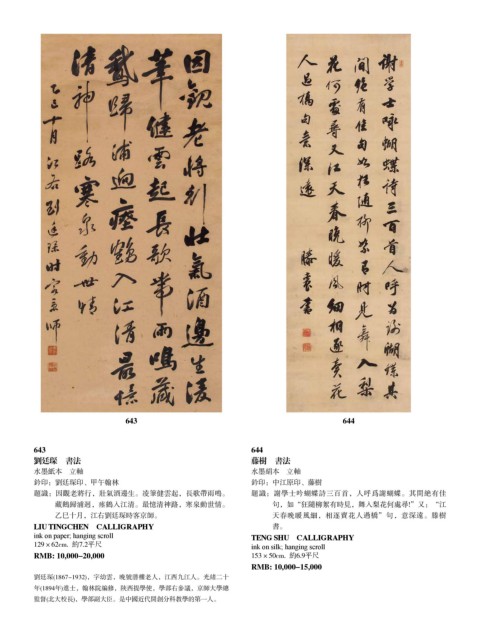 因觀老將行壯氣酒邊生凌
筆健雲起長歌帶雨鳴藏
鵝歸浦迥瘞鶴入江清最憶
清神路寒泉動世情
乙巳十月江右劉廷琛時客京師
謝學士咏蝴蝶詩三百首人呼為謝蝴蝶其
間絕有佳句如狂隨柳絮有時見舞入梨
花何處尋又江天春晚暖風細相逐賣花
人過橋句意深遠
滕書
643
644
643
劉廷琛 書法
水墨紙本 立軸
鈐印：劉廷琛印、甲午翰林
題識：因觀老將行，壯氣酒邊生。凌筆健雲起，長歌帶雨鳴。
藏鵝歸浦迥，瘞鶴入江清。最憶清神路，寒泉動世情。
乙巳十月，江右劉廷琛時客京師。
LIU TINGCHEN CALLIGRAPHY
ink on paper; hanging scroll
129×62cm. 約7.2平尺
RMB: 10,000-20,000
劉廷琛(1867-1932)，字幼雲，晚號潛樓老人，江西九江人。光緒二十
年(1894年)進士，翰林院編修，陝西提學使，學部右參議，京師大學總
監督(北大校長)，學部副大臣。是中國近代開創分科教學的第一人。
644
藤樹 書法
水墨絹本 立軸
鈐印：中江原印、藤樹
題識：謝學士吟蝴蝶詩三百首，人呼爲謝蝴蝶。其間絶有佳
句，如“狂隨柳絮有時見，舞入梨花何處尋!”又：“江
天春晚暖風細，相逐賣花人過橋”句，意深遠。滕樹
書。
TENG SHU CALLIGRAPHY
ink on silk; hanging scroll
153×50cm. 約6.9平尺
RMB: 10,000-15,000